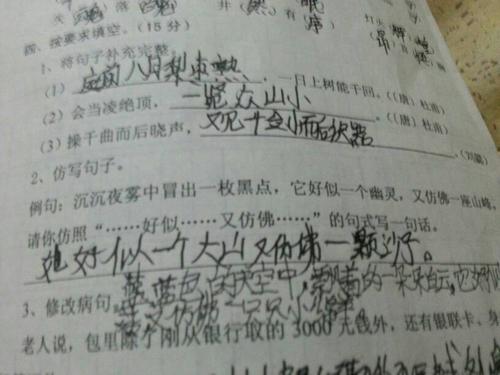 落 井 有序
四、按要求填空。(15分)
1、将句子补充完整。
(1) 庭前八月梨枣熟，一日上树能千回。((唐)杜甫)
(2) 会当凌绝顶，一览众山小。((唐)杜甫)
(3) 操千曲而后晓声，观千剑而后识器。
2、仿写句子。
例句：沉沉夜雾中冒出一枚黑点，它好似一个幽灵，又仿佛一座山峰。
请你仿照“……好似……又仿佛……”的句式写一句话。
她好似一个大山又仿佛一颗沙子。
蓝蓝的天空中，飘着的一朵朵白云，它好
3、修改病句。又仿佛一只只小
老人说，包里除了刚从银行取的3000元钱外，还有银联卡、身